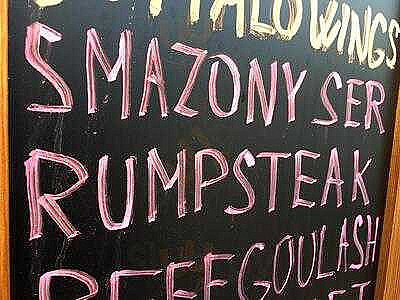 BUFFALO WINGS
SMAZONY SER
RUMPSTEAK
BEEF GOULASH